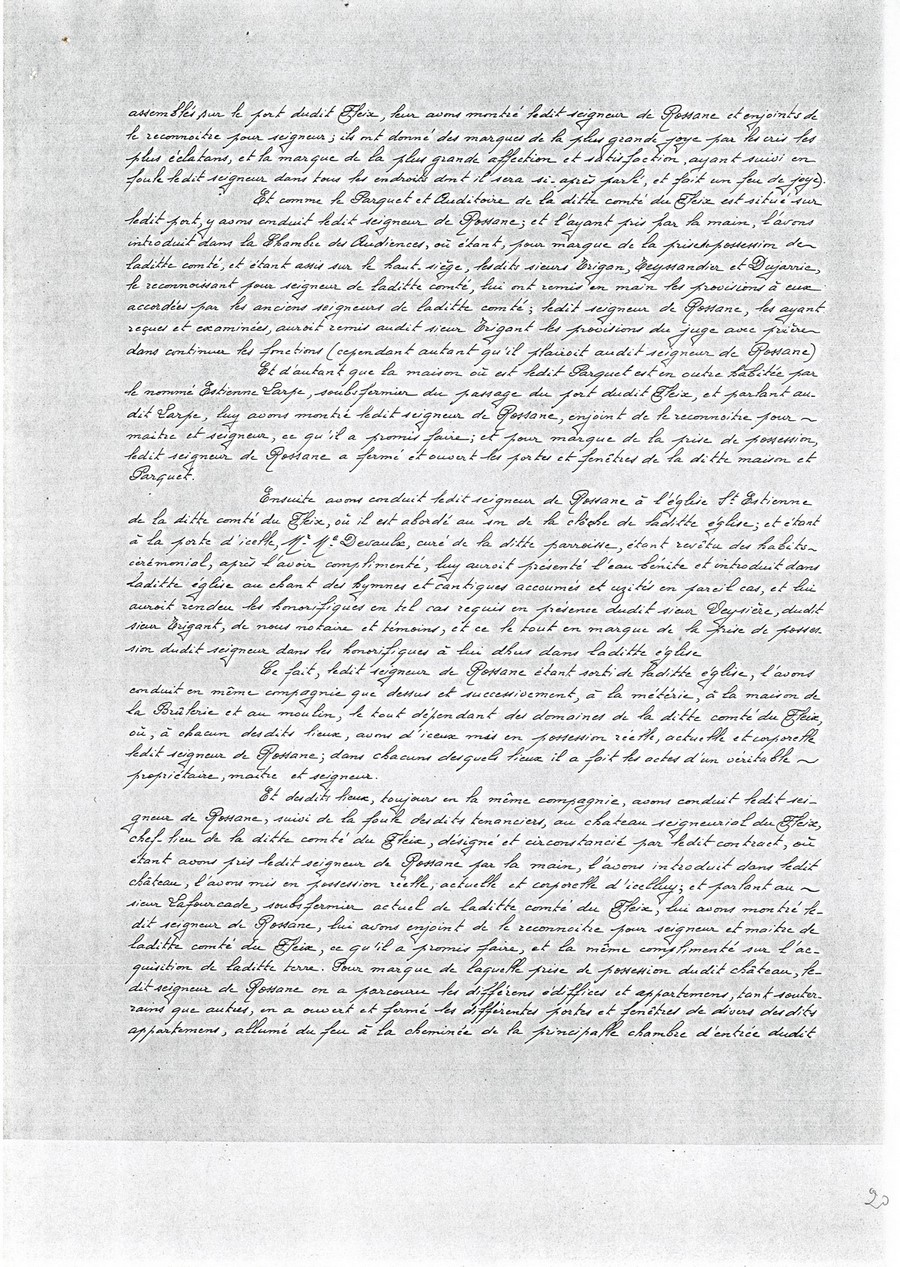 assemblés sur le port dudit Fleix, leur avons montré ledit seigneur de Rossane et enjoints de
le reconnoitre pour seigneur; ils ont donné des marques de la plus grande joye par les cris les
plus éclatans, et la marque de la plus grande affection et satisfaction, ayant suivi en
foule ledit seigneur dans tous les endroits dont il sera si-après parlé, et fait un feu de joye).
Et comme le Parquet et Auditoire de la ditte comté du Fleix est situé sur
ledit port, y avons conduit ledit seigneur de Rossane; et l'ayant pris par la main, l'avons
introduit dans la Chambre des Audiences, où étant, pour marque de la prise de possession de
laditte comté, et étant assis sur le haut siège, lesdits sieurs Erigan, Teyssandier et Dujarric,
le reconnoissant pour seigneur de laditte comté, lui ont remis en main les provisions à eux
accordées par les anciens seigneurs de laditte comté; ledit seigneur de Rossane, les ayant
reçues et examinées, auroit remis audit sieur Erigant les provisions du juge avec prière
dans continuer les fonctions (cependant autant qu'il plairoit audit seigneur de Rossane)
Et d'autant que la maison où est ledit Parquet est en outre habitée par
le nommé Estienne Larpe, soubsfermier du passage du port dudit Fleix, et parlant au-
dit Larpe, luy avons montré ledit seigneur de Rossane, enjoint de le reconnoitre pour
maitre et seigneur, ce qu'il a promis faire; et pour marque de la prise de possession,
ledit seigneur de Rossane a fermé et ouvert les portes et fenêtres de la ditte maison et
Parquet.
Ensuite avons conduit ledit seigneur de Rossane à l'église St Estienne
de la ditte comté du Fleix, où il est abordé au son de la cloche de laditte église; et étant
à la porte d'icelle, Mr Me Devaulx, curé de la ditte parroisse, étant revêtu des habits
cérémonial, après l'avoir complimenté, luy auroit présenté l'eau bénite et introduit dans
laditte église au chant des hymnes et cantiques accoumés et uzités en pareil cas, et lui
auroit rendeu les honorifiques en tel cas requis en présence dudit sieur Veysière, dudit
sieur Erigant, de nous notaire et témoins, et ce le tout en marque de la prise de posses-
sion dudit seigneur dans les honorifiques à lui dhus dans laditte église
Ce fait, ledit seigneur de Rossane étant sorti de laditte église, l'avons
conduit en même compagnie que dessus et successivement, à la métérie, à la maison de
la Brûlerie et au moulin, le tout dépendant des domaines de la ditte comté du Fleix,
où, à chacun desdits lieux, avons d'iceux mis en possession réelle, actuelle et corporelle
ledit seigneur de Rossane; dans chacuns desquels lieux il a fait les actes d'un véritable
propriétaire, maitre et seigneur.
Et desdits lieux, toujours en la même compagnie, avons conduit ledit sei-
gneur de Rossane, suivi de la foule desdits tenanciers, au chateau seigneurial du Fleix,
chef-lieu de la ditte comté du Fleix, désigné et circonstancié par ledit contract, où
étant avons pris ledit seigneur de Rossane par la main, l'avons introduit dans ledit
château, l'avons mis en possession réelle, actuelle et corporelle d'icelluy; et parlant au
sieur Lafourcade, soubsfermier actuel de laditte comté du Fleix, lui avons montré le-
dit seigneur de Rossane, lui avons enjoint de le reconnoitre pour seigneur et maitre de
laditte comté du Fleix, ce qu'il a promis faire, et la même complimenté sur l'ac-
quisition de laditte terre. Pour marque de laquelle prise de possession dudit château, le-
dit seigneur de Rossane en a parcouru les différens édiffices et appartemens, tant souter-
rains que autres, en a ouvert et fermé les différentes portes et fenêtres de divers desdits
appartemens, allumé du feu à la cheminée de la principalle chambre d'entrée dudit
20